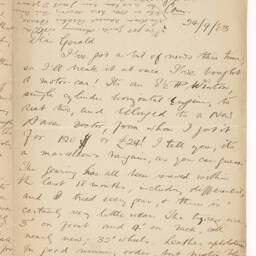 24/9/03
Dear Gerald
I've got a bit of news this time,
so I'll break it at once. I've bought
a motor car! It's an 8½ H Winton,
single cylinder horizontal engine, to
seat two, and belonged to a near
Doctor, from whom I got it
for 120 $ or £24! I tell you, it's
a marvellous bargain, as you can guess.
The gearing has all been renewed within
the last 18 months, including differential,
and I tried every gear, & there is
certainly very little wear. The tyres are
3" on front and 4" on rear, all
nearly new; 32" wheels. Leather upholstery
in good running order, but